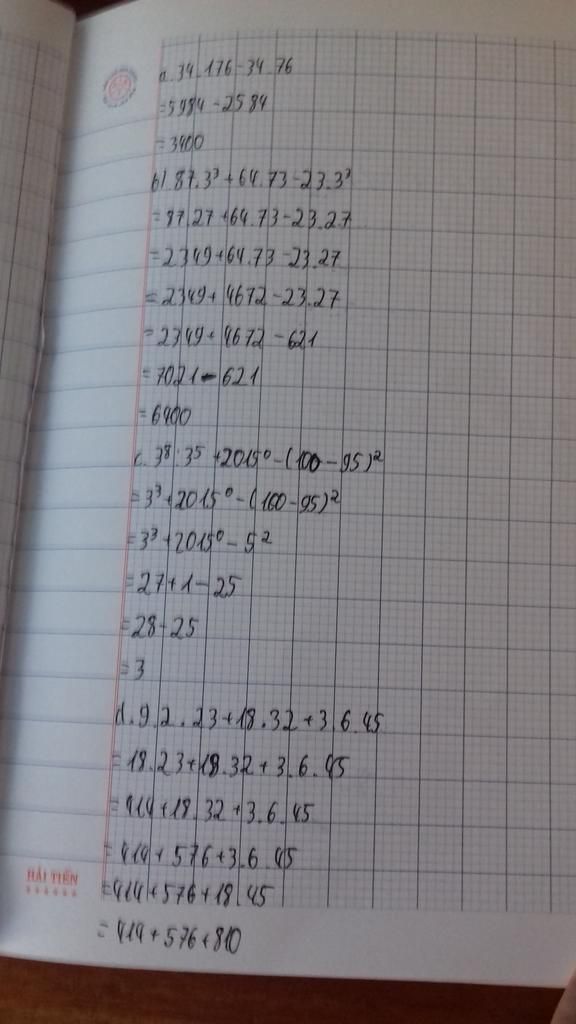 a. 34.176-34.76
=5984-2584
=3400
b) 87.3³+64.73-23.3³
=87.27+64.73-23.27
=2349+64.73-23.27
=2349+4672-23.27
=2349+4672-621
=7021-621
=6400
c. 3⁸:3⁵+2015⁰-(100-95)²
=3³+2015⁰-(100-95)²
=3³+2015⁰-5²
=27+1-25
=28-25
=3
d. 9.2.23+18.32+3.6.45
=18.23+18.32+3.6.45
=414+18.32+3.6.45
=414+576+3.6.45
HẢI TIẾN
=414+576+18.45
=414+576+810